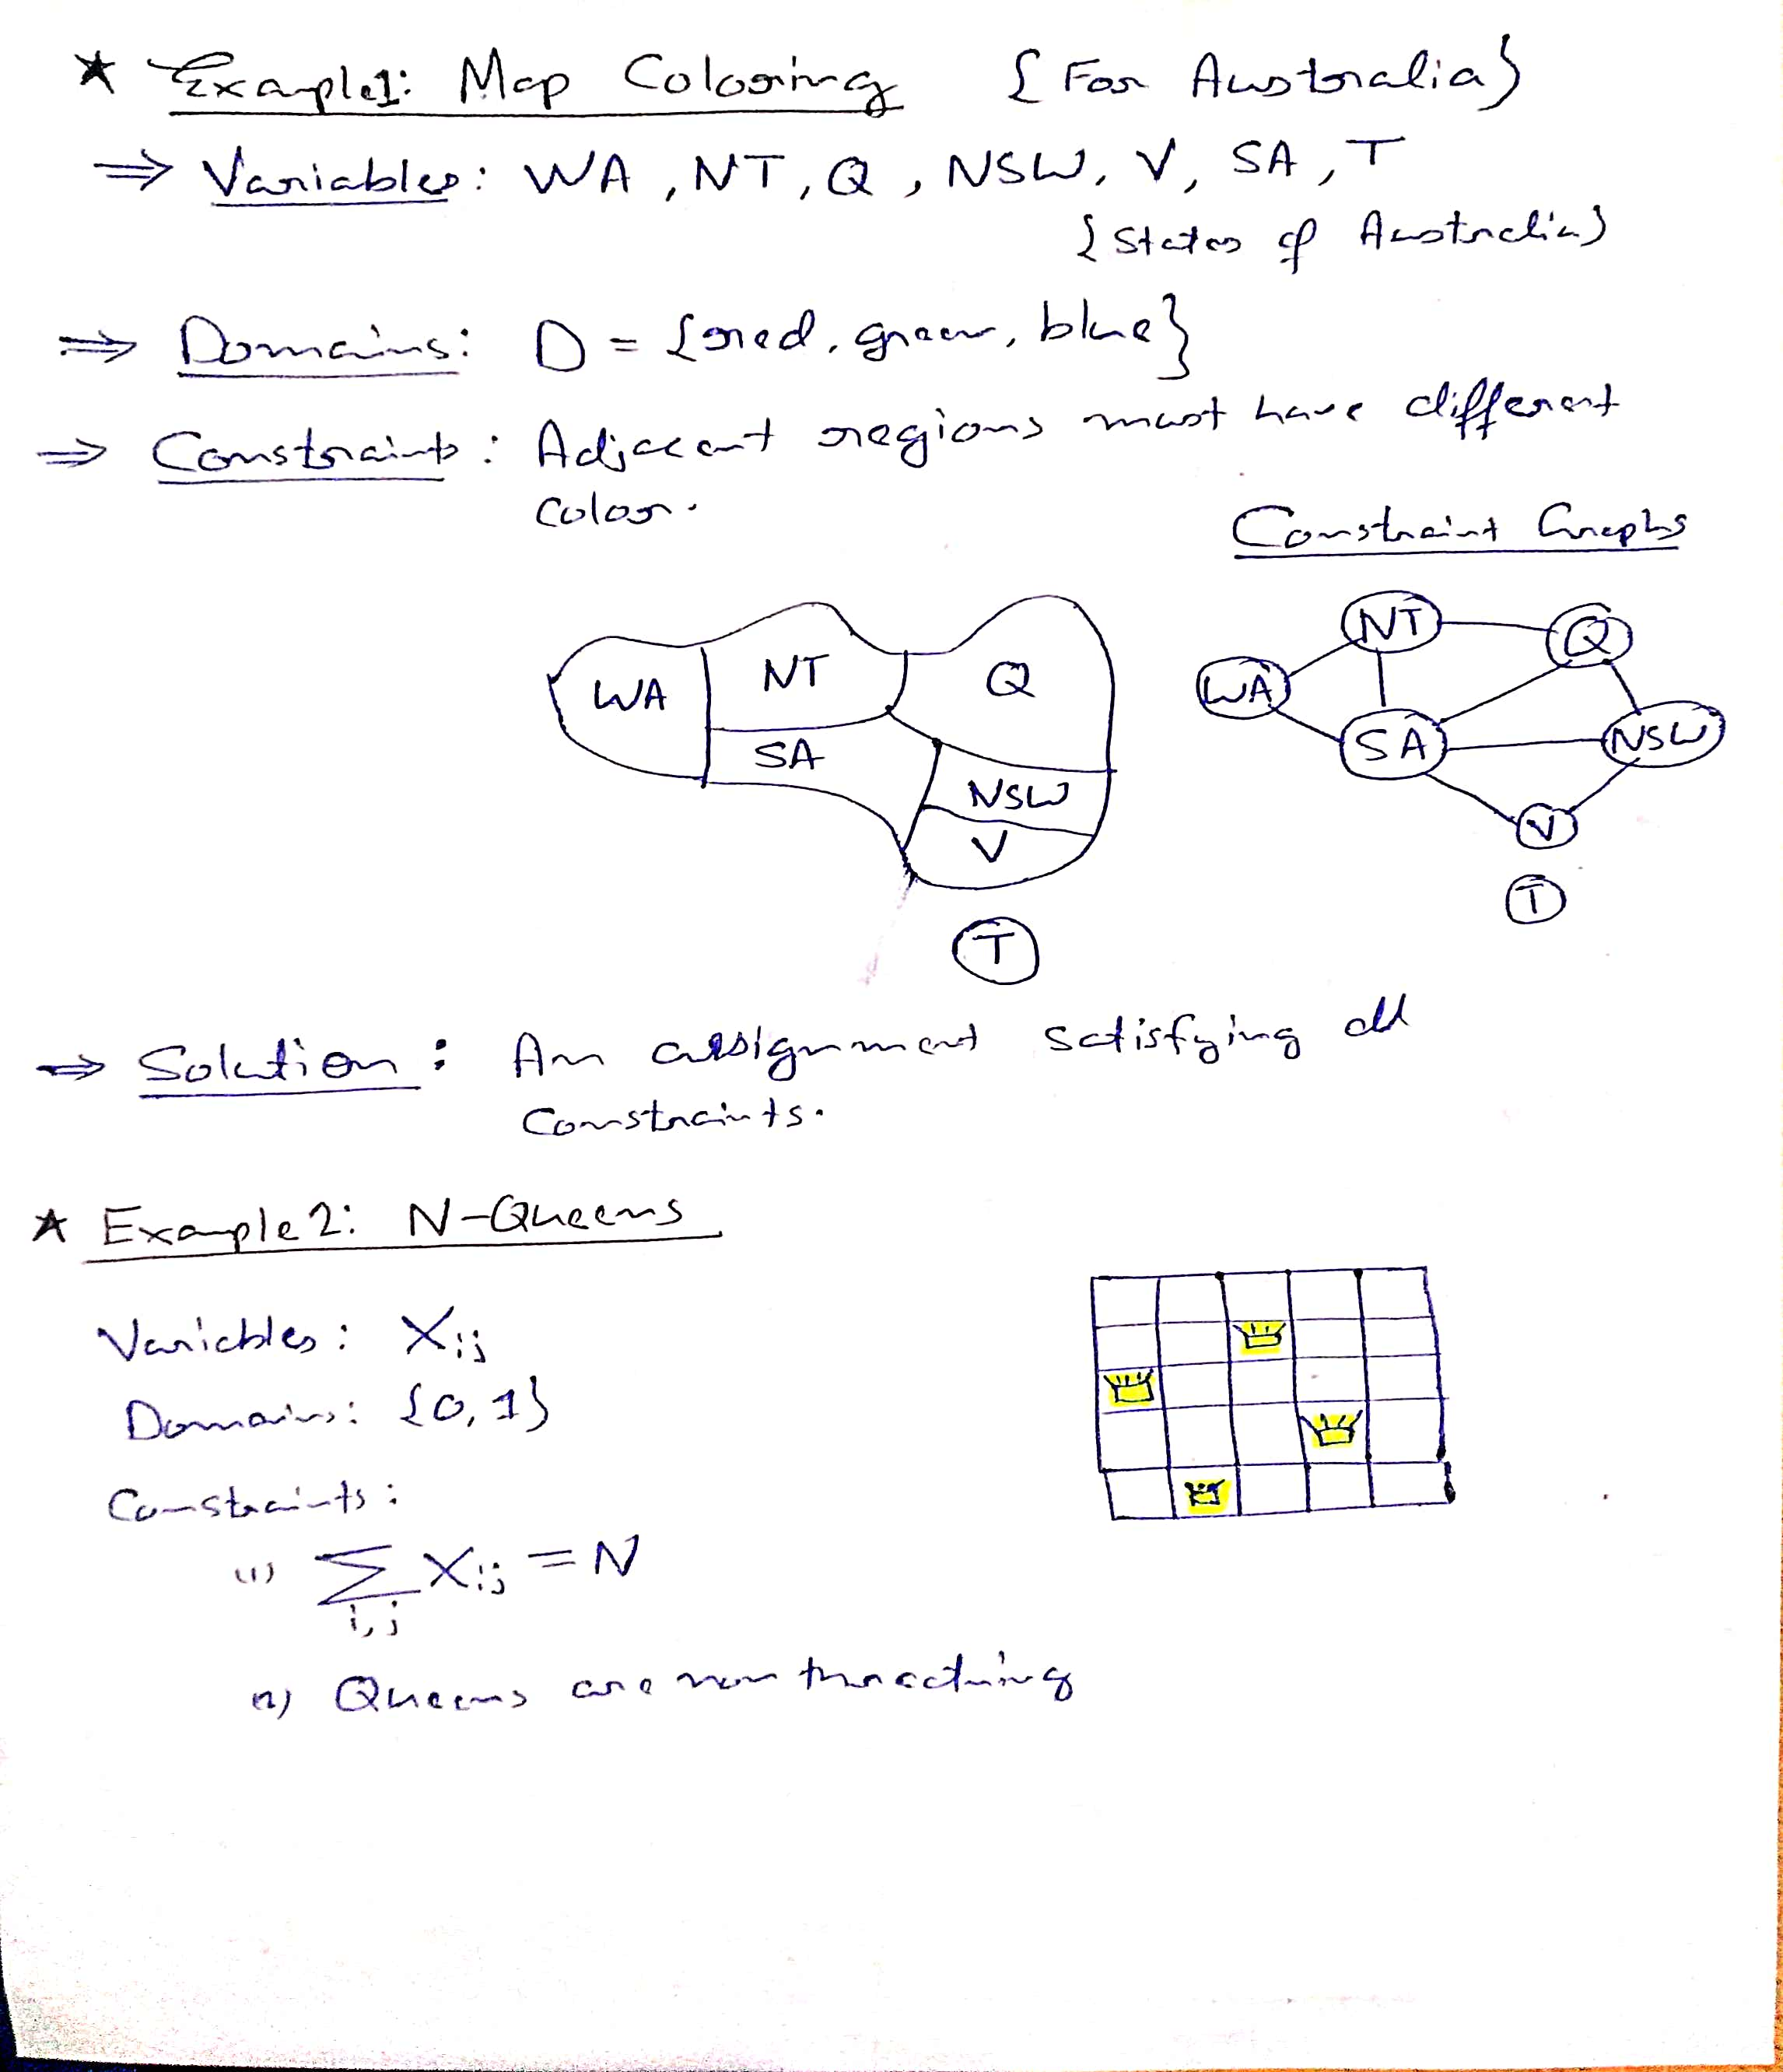 ★ Example1: Map Coloring {For Australia}
⇒ Variables: WA, NT, Q, NSW, V, SA, T
{States of Australia}
⇒ Domains: D = {red, green, blue}
⇒ Constraints: Adjacent regions must have different
color.
Constraint Graphs
WA NT Q
SA
NSW
V
T
NT Q
WA
SA NSW
V
T
⇒ Solution: An assignment satisfying all
Constraints.
★ Example2: N-Queens
Variables: Xij
Domains: {0, 1}
Constraints:
(1) ∑ Xij = N
i,j
(2) Queens are non threatning